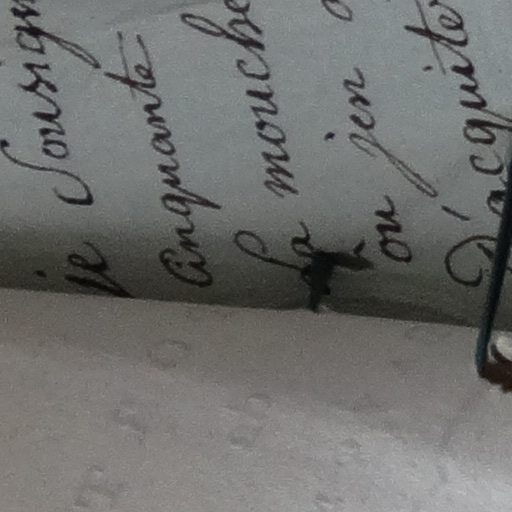 je Sousign
Cinquante
La mouche
ou jen
D'acquite